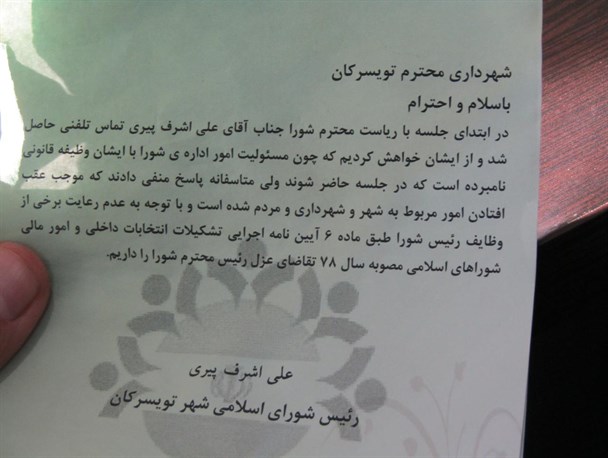 شهرداری محترم تویسرکان
باسلام و احترام
در ابتدای جلسه با ریاست محترم شورا جناب آقای علی اشرف پیری تماس تلفنی حاصل
شد و از ایشان خواهش کردیم که چون مسئولیت امور اداره ی شورا با ایشان وظیفه قانونی
نامبرده است که در جلسه حاضر شوند ولی متاسفانه پاسخ منفی دادند که موجب عقب
افتادن امور مربوط به شهر و شهرداری و مردم شده است و با توجه به عدم رعایت برخی از
وظایف رئیس شورا طبق ماده ۶ آیین نامه اجرایی تشکیلات انتخابات داخلی و امور مالی
شوراهای اسلامی مصوبه سال ۷۸ تقاضای عزل رئیس محترم شورا را داریم.
علی اشرف پیری
رئیس شورای اسلامی شهر تویسرکان